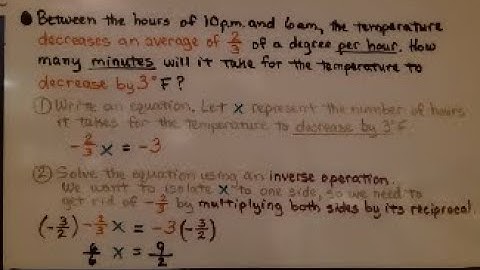 ● Between the hours of 10p.m. and 6am, the temperature
decreases an average of 2/3 of a degree per hour. How
many minutes will it take for the temperature to
decrease by 3°F?
① Write an equation. Let x represent the number of hours
it takes for the temperature to decrease by 3°F
-2/3 x = -3
② Solve the equation using an inverse operation.
We want to isolate x to one side, so we need to
get rid of -2/3 by multiplying both sides by its reciprocal.
(-3/2) -2/3 x = -3 (-3/2)
6/6 x = 9/2